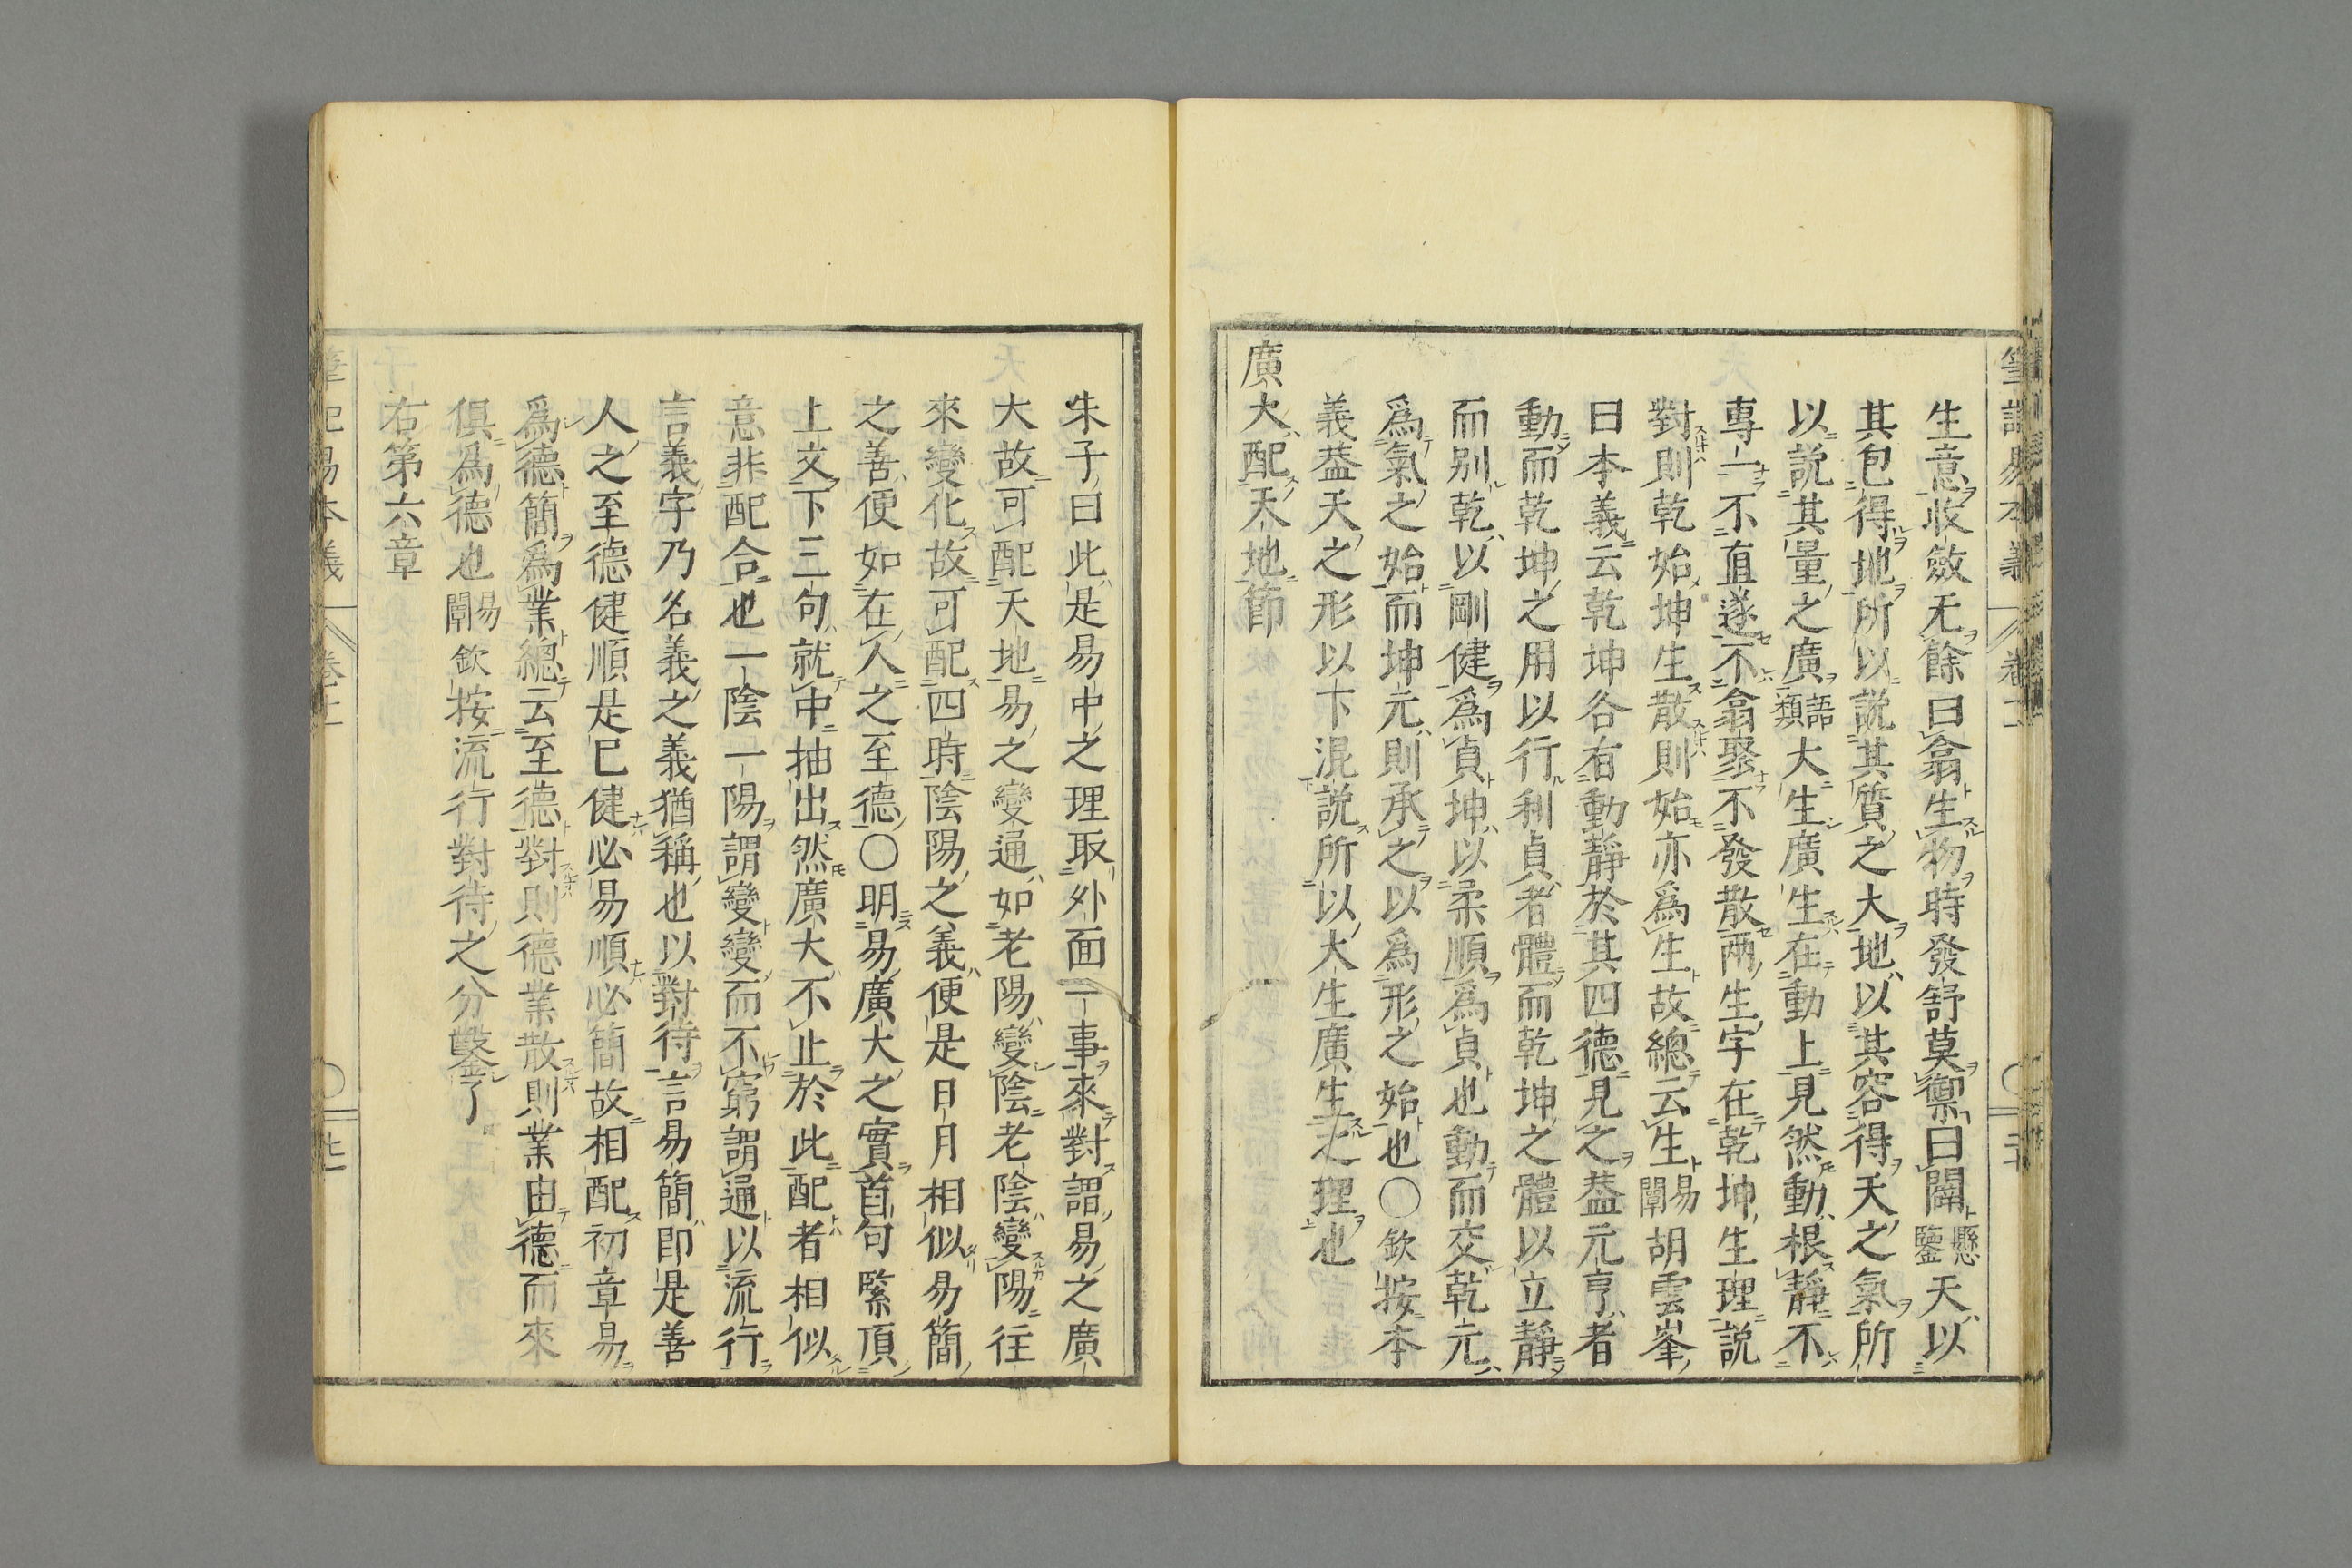 生意收斂无餘曰翕生物時發舒莫禦曰闢懸鑒天以
其包得地所以説其質之大地以其容得天之氣所
以説其量之廣語類大生廣生在動上見然動根靜不
專一不直遂不翕聚不發散兩生字在乾坤生理説
對則乾始坤生散則始亦爲生故總云生易闡胡雲峯
曰本義云乾坤各有動靜於其四德見之葢元亨者
動而乾坤之用以行利貞者體而乾坤之體以立靜
而别乾以剛健爲貞坤以柔順爲貞也動而交乾元
爲氣之始而坤元則承之以爲形之始也〇欽按本
義葢天之形以下混説所以大生廣生之理也
廣大配天地節
朱子曰此是易中之理取外面一事來對謂易之廣
大故可配天地易之變通如老陽變陰老陰變陽往
來變化故可配四時陰陽之義便是日月相似易簡
之善便如在人之至德〇明易廣大之實首句緊頂
上文下三句就中抽出然廣大不止於此配者相似
意非配合也一陰一陽謂變變而不窮謂通以流行
言義字乃名義之義猶稱也以對待言易簡即是善
人之至德健順是已健必易順必簡故相配初章易
爲德簡爲業總云至德對則德業散則業由德而來
俱爲德也易闡欽按流行對待之分鑿了
右第六章